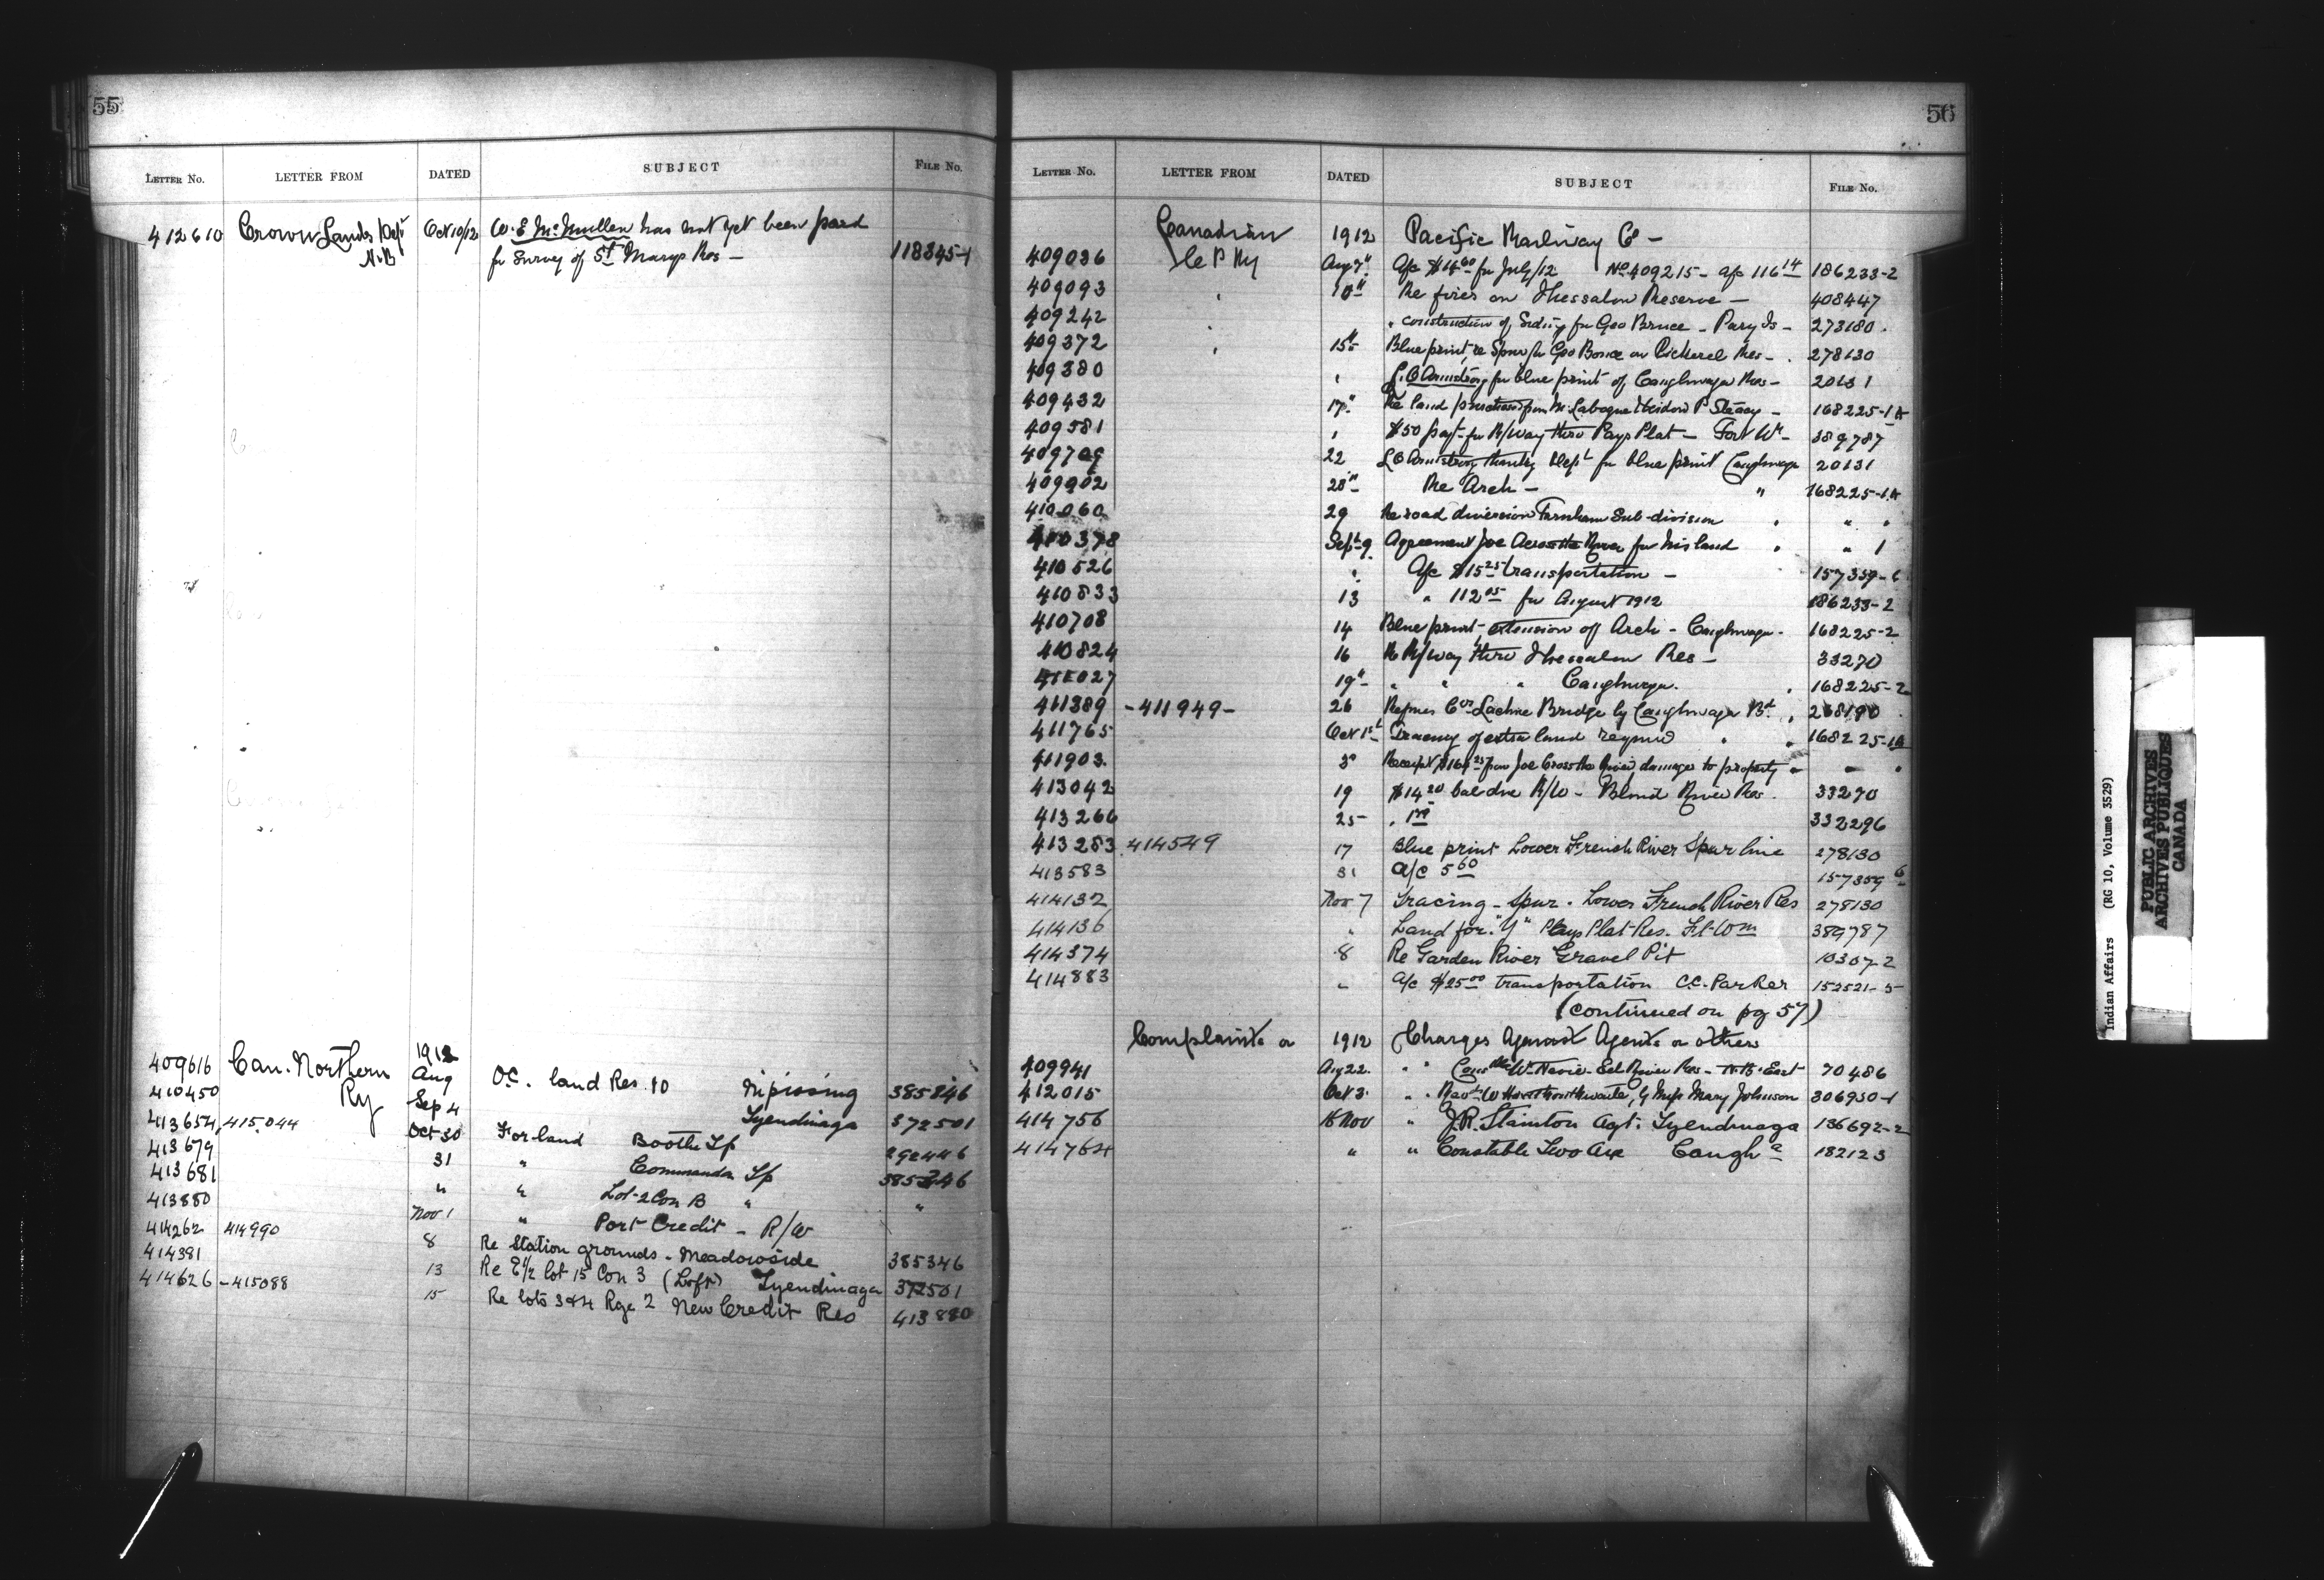 55
LETTER No. LETTER FROM DATED SUBJECT FILE No.
412610 Crown Lands Dept Oct 10/12 W. E. McMullen has not yet been paid
N.B for Survey of St Marys Res — 118345-1
1912
409616 Can. Northern Aug O.C. land Res. 10 Nipissing 385346
410450 Ry Sep 4 Tyendinaga 372501
413654, 415044 Oct 30 For land Booth Tp 292446
413679 31 " Commanda Tp 385346
413681 " " Lot-2 Con B " "
413880 Nov 1 " Port Credit - R/W
414262 414990 8 Re Station grounds - Meadowside 385346
414391 13 Re E1/2 lot 15 Con 3 Tyendinaga 372501
414626 - 415088 15 Re lots 3 & 4 Rge 2 New Credit Res 413880
56
LETTER No. LETTER FROM DATED SUBJECT FILE No.
Canadian 1912 Pacific Railway Co —
409036 C P Ry Aug 7" A/c $14 60 for July/12 No 409215 - a/c 116 14 186233-2
409093 " 10" Re fires on Thessalon Reserve — 408447
409242 " " construction of Siding for Geo Bruce - Parry Is - 273180
409372 " 15" Blue print re Spur for Geo on Pickerel Res - 278130
409380 " L. O Armstrong for blue print of Caughnawaga Res - 20131
409432 17" Re land from 168225-1A
409581 " $50 payt for R/way thro Pays Plat - Fort Wm - 389787
409709 22 L O Armstrong thanks Dept for blue print Caughnawaga 20131
409902 28" Re Arch — " 168225-1A
410060 29 Re road diversion Farnham Sub-division " " "
410378 Sept 9 Agreement Joe Across the River for his land " " 1
410526 " A/c $15 25 transportation — 157359-6
410833 13 " 112 05 for August 1912 186233-2
410708 14 Blue print, extension of Arch - Caughnawaga - 168225-2
410824 16 Re R/way thro Thessalon Res — 33270
411027 19" " " " Caughnawaga " 168225-2
411389 - 411949 - 26 Lachine Bridge by Caughnawaga 268190
411765 Oct 1st Tracing of extra land required " " 168225-1A
411903 3" Receipt from Joe Cross the River damages to property " — "
413042 19 $14 20 bal due R/W - Blind River Res. 33270
413266 25 332296
413283 414549 17 Blue print Lower French River Spur line 278130
413583 31 a/c 5 60 157359 6
414132 Nov 7 Tracing - Spur - Lower French River Res 278130
414136 " Land for "Y" Pays Plat Res. Ft-Wm 389787
414374 8 Re Garden River Gravel Pit 10307-2
414883 " a/c $25 00 transportation C.C. Parker 152521-5
(continued on pg 57)
Complaints or 1912 Charges Against Agents or others
409941 Aug 22 " " Eel River Res - N.B. East 70486
412015 Oct 3 " " Revd W by Miss Mary Johnson 306930-1
414756 16 Nov " J.R. Stainton Agt. Tyendinaga 136692-2
414764 " " Constable Two Axe Caugha 182123
Indian Affairs (RG 10, Volume 3529)
PUBLIC ARCHIVES
ARCHIVES PUBLIQUES
CANADA